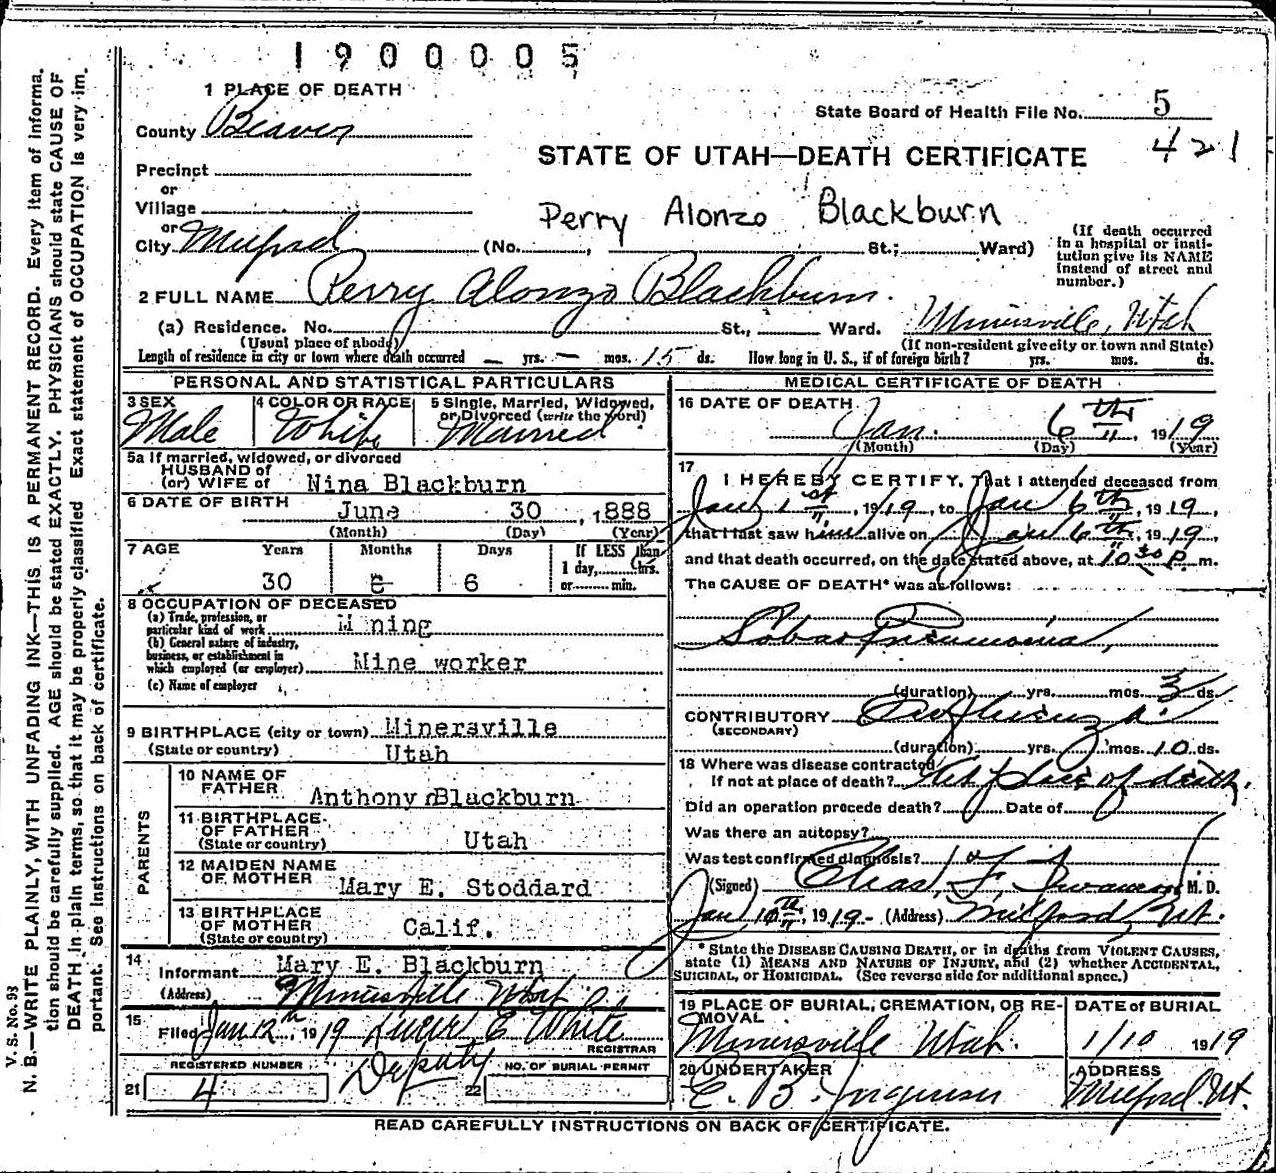 1900005
1 PLACE OF DEATH
State Board of Health File No. 5
County Beaver
421
STATE OF UTAH—DEATH CERTIFICATE
Precinct
or
Village
Perry Alonzo Blackburn
or
City Milford (No. , St.; Ward)
(If death occurred in a hospital or insti-
tution give its NAME instead of street and number.)
2 FULL NAME Perry Alonzo Blackburn.
(a) Residence. No. St., Ward. Minersville, Utah
(Usual place of abode) (If non-resident give city or town and State)
Length of residence in city or town where death occurred — yrs. — mos. 15 ds. How long in U. S., if of foreign birth? yrs. mos. ds.
PERSONAL AND STATISTICAL PARTICULARS
3 SEX 4 COLOR OR RACE 5 Single, Married, Widowed, or Divorced (write the word)
Male White Married
5a If married, widowed, or divorced
HUSBAND of
(or) WIFE of Nina Blackburn
6 DATE OF BIRTH June 30, 1888
(Month) (Day) (Year)
7 AGE Years Months Days If LESS than
1 day, hrs.
or min.
30 6 6
8 OCCUPATION OF DECEASED
(a) Trade, profession, or
particular kind of work M ning
(b) General nature of industry,
business, or establishment in
which employed (or employer) Mine worker
(c) Name of employer
9 BIRTHPLACE (city or town) Minersville
(State or country) Utah
PARENTS
10 NAME OF
FATHER Anthony Blackburn
11 BIRTHPLACE
OF FATHER
(State or country) Utah
12 MAIDEN NAME
OF MOTHER Mary E. Stoddard
13 BIRTHPLACE
OF MOTHER
(State or country) Calif.
14
Informant Mary E. Blackburn
(Address) Minersville Utah
15
Filed Jan 12th, 1919 E White
REGISTRAR
Deputy
REGISTERED NUMBER NO. OF BURIAL PERMIT
21 4 22
MEDICAL CERTIFICATE OF DEATH
16 DATE OF DEATH
Jan. 6th, 1919
(Month) (Day) (Year)
17
I HEREBY CERTIFY, That I attended deceased from
Jan 1st, 1919, to Jan 6th, 1919,
that I last saw him alive on Jan 6th, 1919,
and that death occurred, on the date stated above, at 10 30 P. m.
The CAUSE OF DEATH* was as follows:
Lobar Pneumonia,
(duration) yrs. mos. 3 ds.
CONTRIBUTORY Influenza.
(SECONDARY)
(duration) yrs. mos. 10 ds.
18 Where was disease contracted
If not at place of death? At place of death.
Did an operation precede death? Date of
Was there an autopsy?
Was test confirmed diagnosis?
(Signed) Chas. F. M. D.
Jan 10th, 1919 (Address) Milford, Ut.
* State the DISEASE CAUSING DEATH, or in deaths from VIOLENT CAUSES,
state (1) MEANS AND NATURE OF INJURY, and (2) whether ACCIDENTAL,
SUICIDAL, or HOMICIDAL. (See reverse side for additional space.)
19 PLACE OF BURIAL, CREMATION, OR RE-
MOVAL DATE OF BURIAL
Minersville Utah. 1/10 1919
20 UNDERTAKER ADDRESS
E. B. Jorgensen Milford Ut.
READ CAREFULLY INSTRUCTIONS ON BACK OF CERTIFICATE.
V. S. No. 93
N. B.—WRITE PLAINLY, WITH UNFADING INK—THIS IS A PERMANENT RECORD. Every item of informa-
tion should be carefully supplied. AGE should be stated EXACTLY. PHYSICIANS should state CAUSE OF
DEATH in plain terms, so that it may be properly classified Exact statement of OCCUPATION is very im-
portant. See instructions on back of certificate.